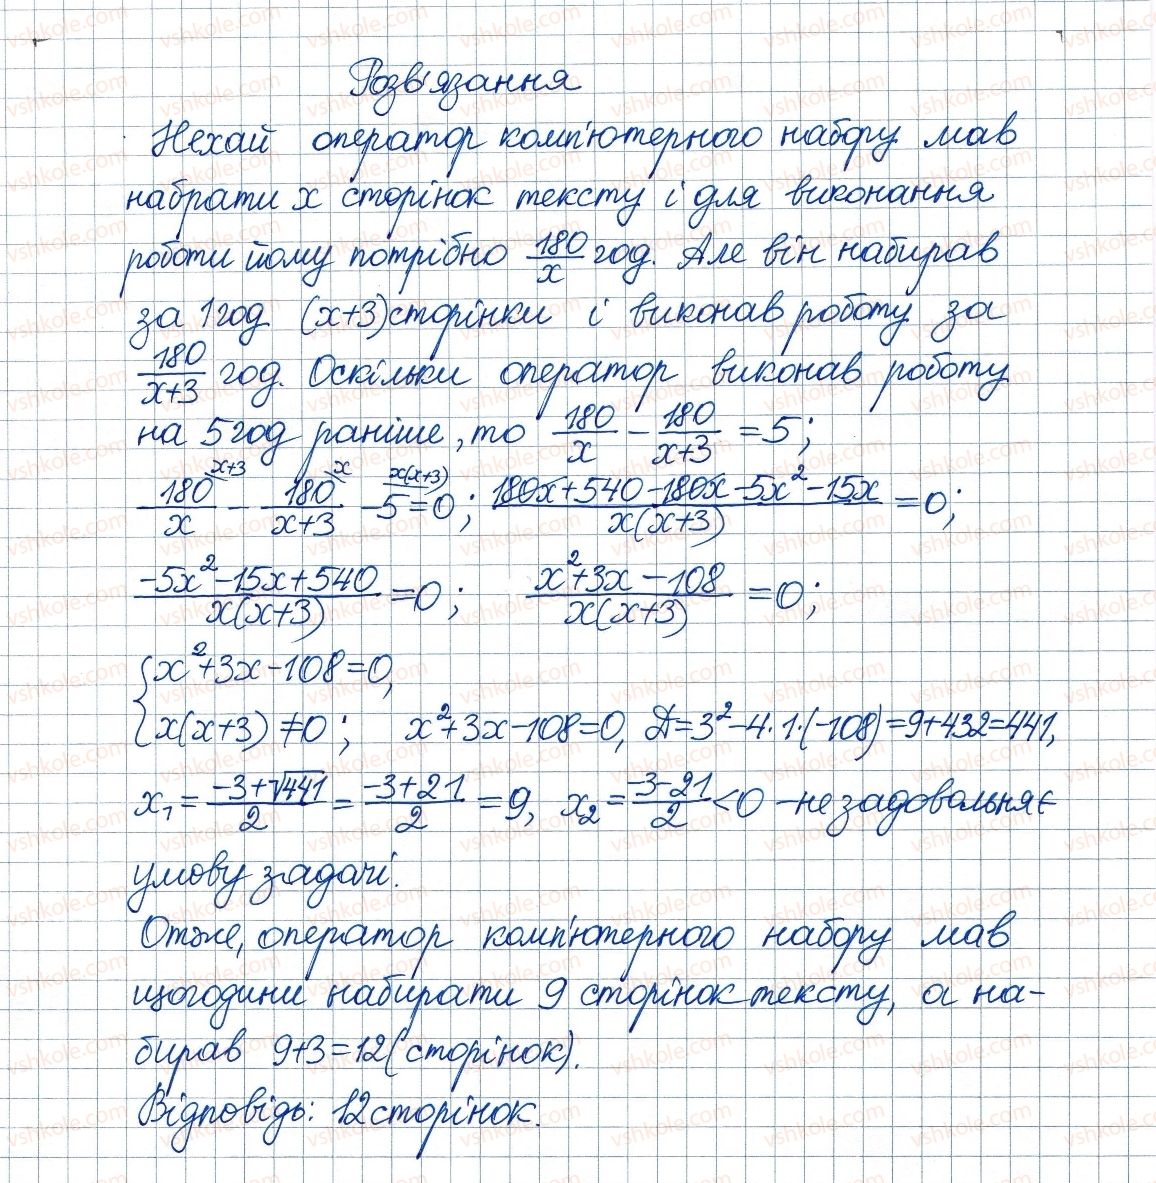 Розв'язання
Нехай оператор комп'ютерного набору мав
набрати x сторінок тексту і для виконання
роботи йому потрібно 180/x год. Але він набирав
за 1 год (x+3) сторінки і виконав роботу за
180/(x+3) год. Оскільки оператор виконав роботу
на 5 год раніше, то 180/x - 180/(x+3) = 5;
180/x ^(x+3) - 180/(x+3) ^x - 5 ^(x(x+3)) = 0; (180x+540-180x-5x²-15x)/(x(x+3)) = 0;
(-5x²-15x+540)/(x(x+3)) = 0; (x²+3x-108)/(x(x+3)) = 0;
{x²+3x-108=0,
x(x+3)≠0; x²+3x-108=0, Д=3²-4·1·(-108)=9+432=441,
x₁ = (-3+√441)/2 = (-3+21)/2 = 9, x₂ = (-3-21)/2 < 0 - не задовольняє
умову задачі.
Отже, оператор комп'ютерного набору мав
щогодини набирати 9 сторінок тексту, а на-
бирав 9+3=12(сторінок).
Відповідь: 12 сторінок.
vshkole.com